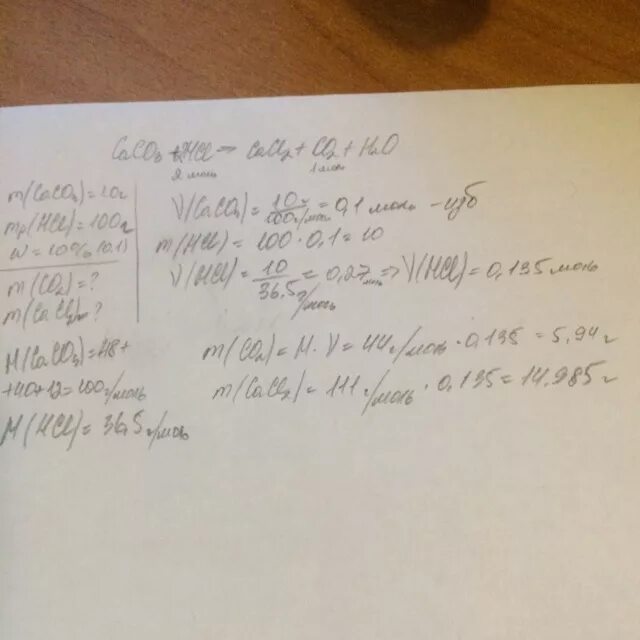 CaCO3 + HCl → CaCl2 + CO2 + H2O
2 моль 1 моль
m(CaCO3) = 10г
mp(HCl) = 100г
w = 10% (0.1)
m(CO2) = ?
m(CaCl2) = ?
M(CaCO3) = 48+
+40+12 = 100г/моль
M(HCl) = 36,5г/моль
V(CaCO3) = 10г/100г/моль = 0,1 моль - изб
m(HCl) = 100 · 0,1 = 10
V(HCl) = 10/36,5г/моль = 0,27 моль => V(HCl) = 0,135 моль
m(CO2) = M · V = 44г/моль · 0,135 = 5,94г
m(CaCl2) = 111г/моль · 0,135 = 14,985г